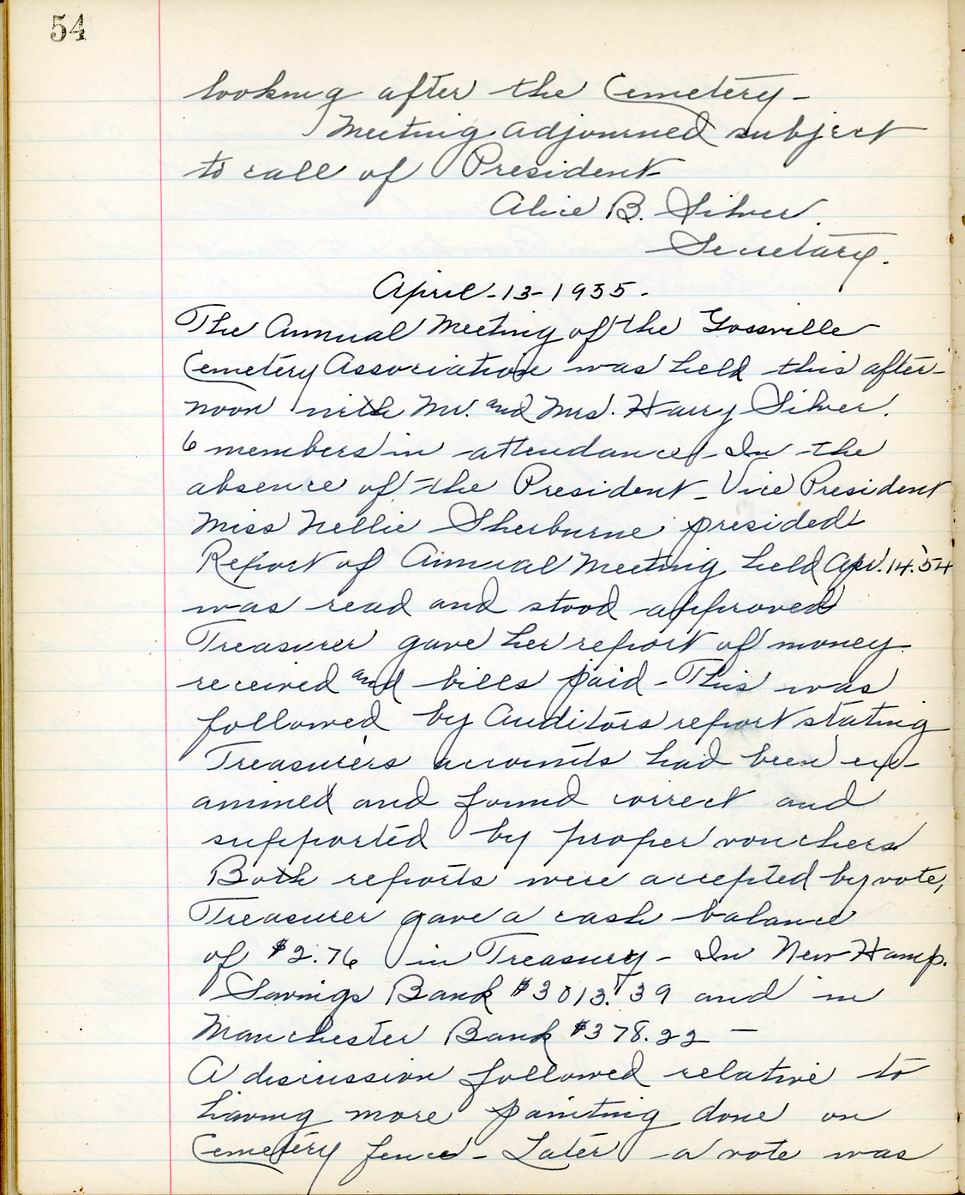 54
looking after the Cemetery -
Meeting adjourned subject
to call of President
Alice B. Silver.
Secretary.
April - 13 - 1955 -
The Annual Meeting of the Gossville
Cemetery Association was held this after-
noon with Mr. and Mrs. Harry Silver.
6 members in attendance - In the
absence of the President - Vice President
Miss Nellie Sherburne presided
Report of Annual Meeting held Apr. 14. '54
was read and stood approved
Treasurer gave her report of money
received and bills paid - This was
followed by Auditors report stating
Treasurer's accounts had been ex-
amined and found correct and
supported by proper vouchers
Both reports were accepted by vote,
Treasurer gave a cash balance
of $2.76 in Treasury - In New Hamp.
Savings Bank $3013.39 and in
Manchester Bank $378.22 -
A discussion followed relative to
having more painting done on
Cemetery fence - Later a vote was